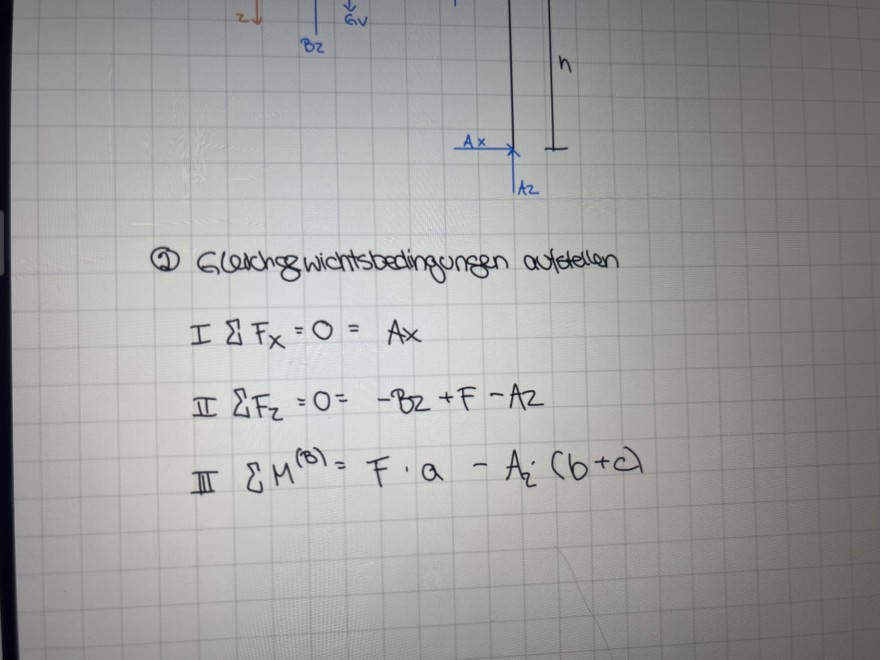 z
Gv
Bz
h
Ax
Az
② Gleichgewichtsbedingungen aufstellen
I Σ Fx = 0 = Ax
II ΣFz = 0 = -Bz + F - Az
III ΣM(B) = F · a - Az · (b+c)